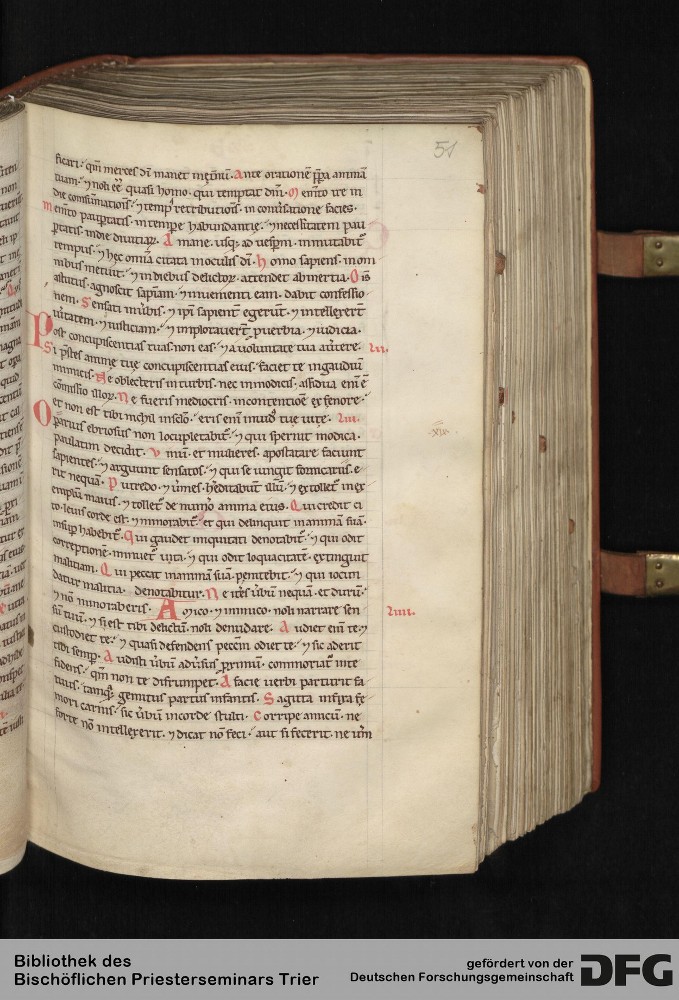 51
ficari. qm̄ merces dī manet inęt̄nū. Ante orationē p̄pa animā
tuam. ⁊ noli eē quasi homo. qui temptat dm̄. Memto ire in
die consūmationis. ⁊ temp retributionis. in conūsatione facies.
memto paup̄tatis. in tempe habundantię. ⁊ necessitatem pau
p̄tatis. indie divitiaꝝ. A mane. usq; ad vespm̄. inmutabit
tempus. ⁊ hęc omnia citata inoculis dī. homo sapiens. inom
nibus metuit. ⁊ indiebus delictoꝝ. attendet abinertia. Ois
astutus. agnoscit sapiam. ⁊ invenienti eam. dabit confessio
nem. Sensati inūbis. ⁊ ipi sapient egerunt. ⁊ intellexert
ūitatem. ⁊ iusticiam. ⁊ implorauert puerbia. ⁊ iudicia.
Post concupiscentias tuas. non eas. ⁊ a uoluntate tua auertere. 
Si p̄stes animę tuę concupiscentias eius. faciet te ingaudiū
inimicis. Ne oblecteris inturbis. nec inmodicis. assidua enī ē
cōmissio illoꝝ. Ne fueris mediocris. incontentioē ex fenore.
et non est tibi nichil insclo. eris enī inuid tuę uitę.
Oparius ebriosus non locupletabit. ⁊ qui spernit modica.
paulatim decidit. vinū. et mulieres. apostatare faciunt
sapientes. ⁊ arguunt sensatos. ⁊ qui se iungit fornicariis. e
rit nequā. Putredo. ⁊ ūmes. hęditabūt illū. ⁊ extollet inex
emplū maius. ⁊ tollet de numo anima eius. Qui credit ci
to. leuis corde est. ⁊ minorabit. et qui delinquit inanimā suā.
insup habebit. Qui gaudet iniquitati denotabit. ⁊ qui odit
correptionē. minuet uita. ⁊ qui odit loquacitatē. extinguit
malitiam. Qui peccat inanimā suā. penitebit. ⁊ qui iocun
datur malitia. denotabitur. Ne ites ūbūm nequā. et durū.
⁊ non minoraberis. Amico. ⁊ inimico. noli narrare sen
sū tuū. ⁊ si est tibi delictū. noli denudare. Audiet enī te. ⁊
custodiet te. ⁊ quasi defendens peccm̄ odiet te. ⁊ sic aderit
tibi semp. Audisti ūbūm adūsus pximū. commoriat inte
fidens. qm̄ non te disrumpet. A facie uerbi parturit fa
tuus. tamq gemitus partus infantis. Sagitta infixa fe
mori carnis. sic ūbūm incorde stulti. Corripe amicū. ne
forte nō intellexerit. ⁊ dicat nō feci. aut si fecerit. ne itm̄
Bibliothek des
Bischöflichen Priesterseminars Trier
gefördert von der
Deutschen Forschungsgemeinschaft
DFG